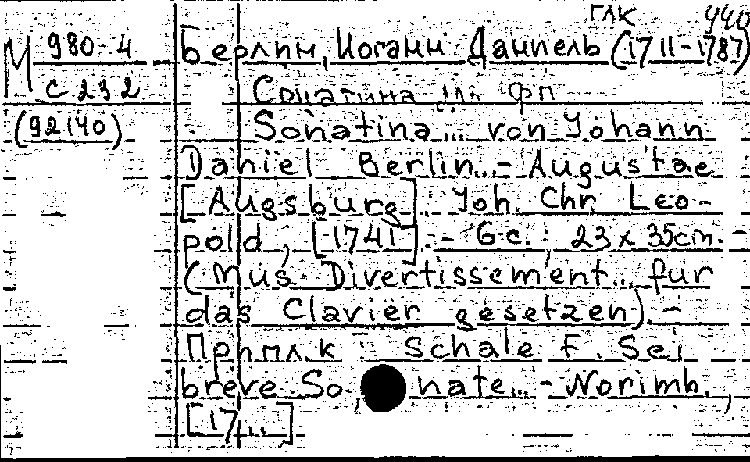 ГЛК 440
М 980-4 Берлин, Иоганн Даниель (1711-1787)
с 232 Сонатина для фп
(92140) Sonatina... von Johann
Daniel Berlin... - Augustae
[Augsburg], Joh. Chr. Leo-
pold, [1741]. - 6 с.; 23 x 35 cm. -
(Mus. Divertissement... fur
das Clavier gesetzen). -
Приплёк: Schale F. Sei
breve So nate... - Norimb.,
[17...]